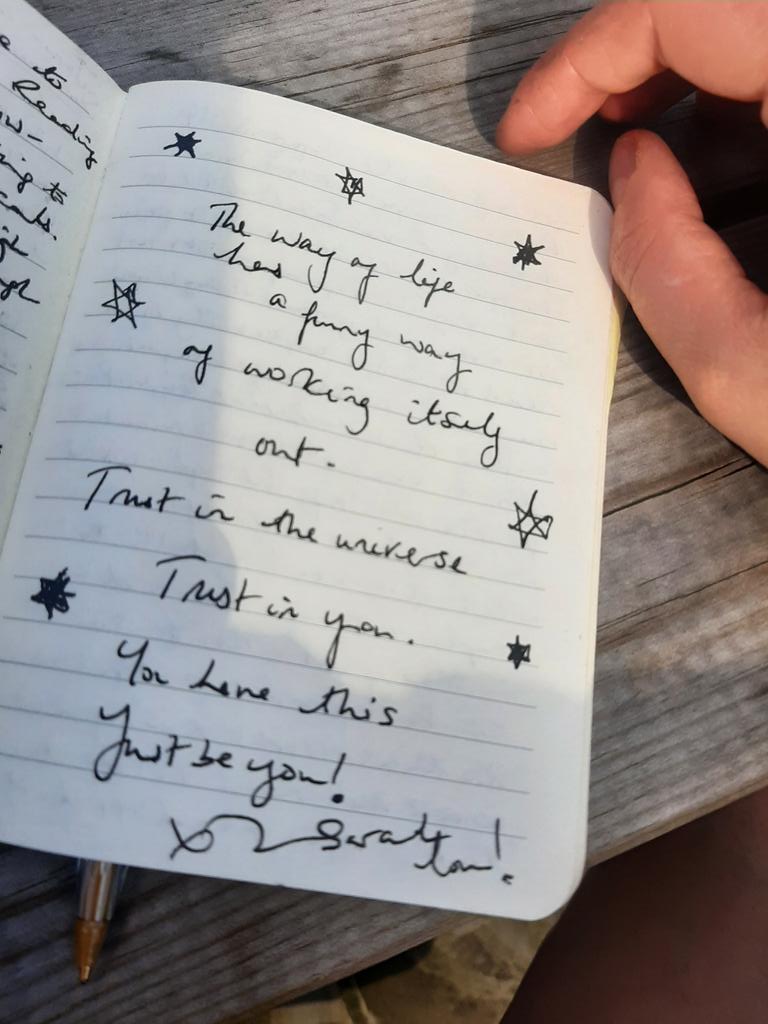 e to
Reading
The way of life
has
a funny way
of working itself
out.
Trust in the universe
Trust in you.
You have this
Just be you!
Sarah